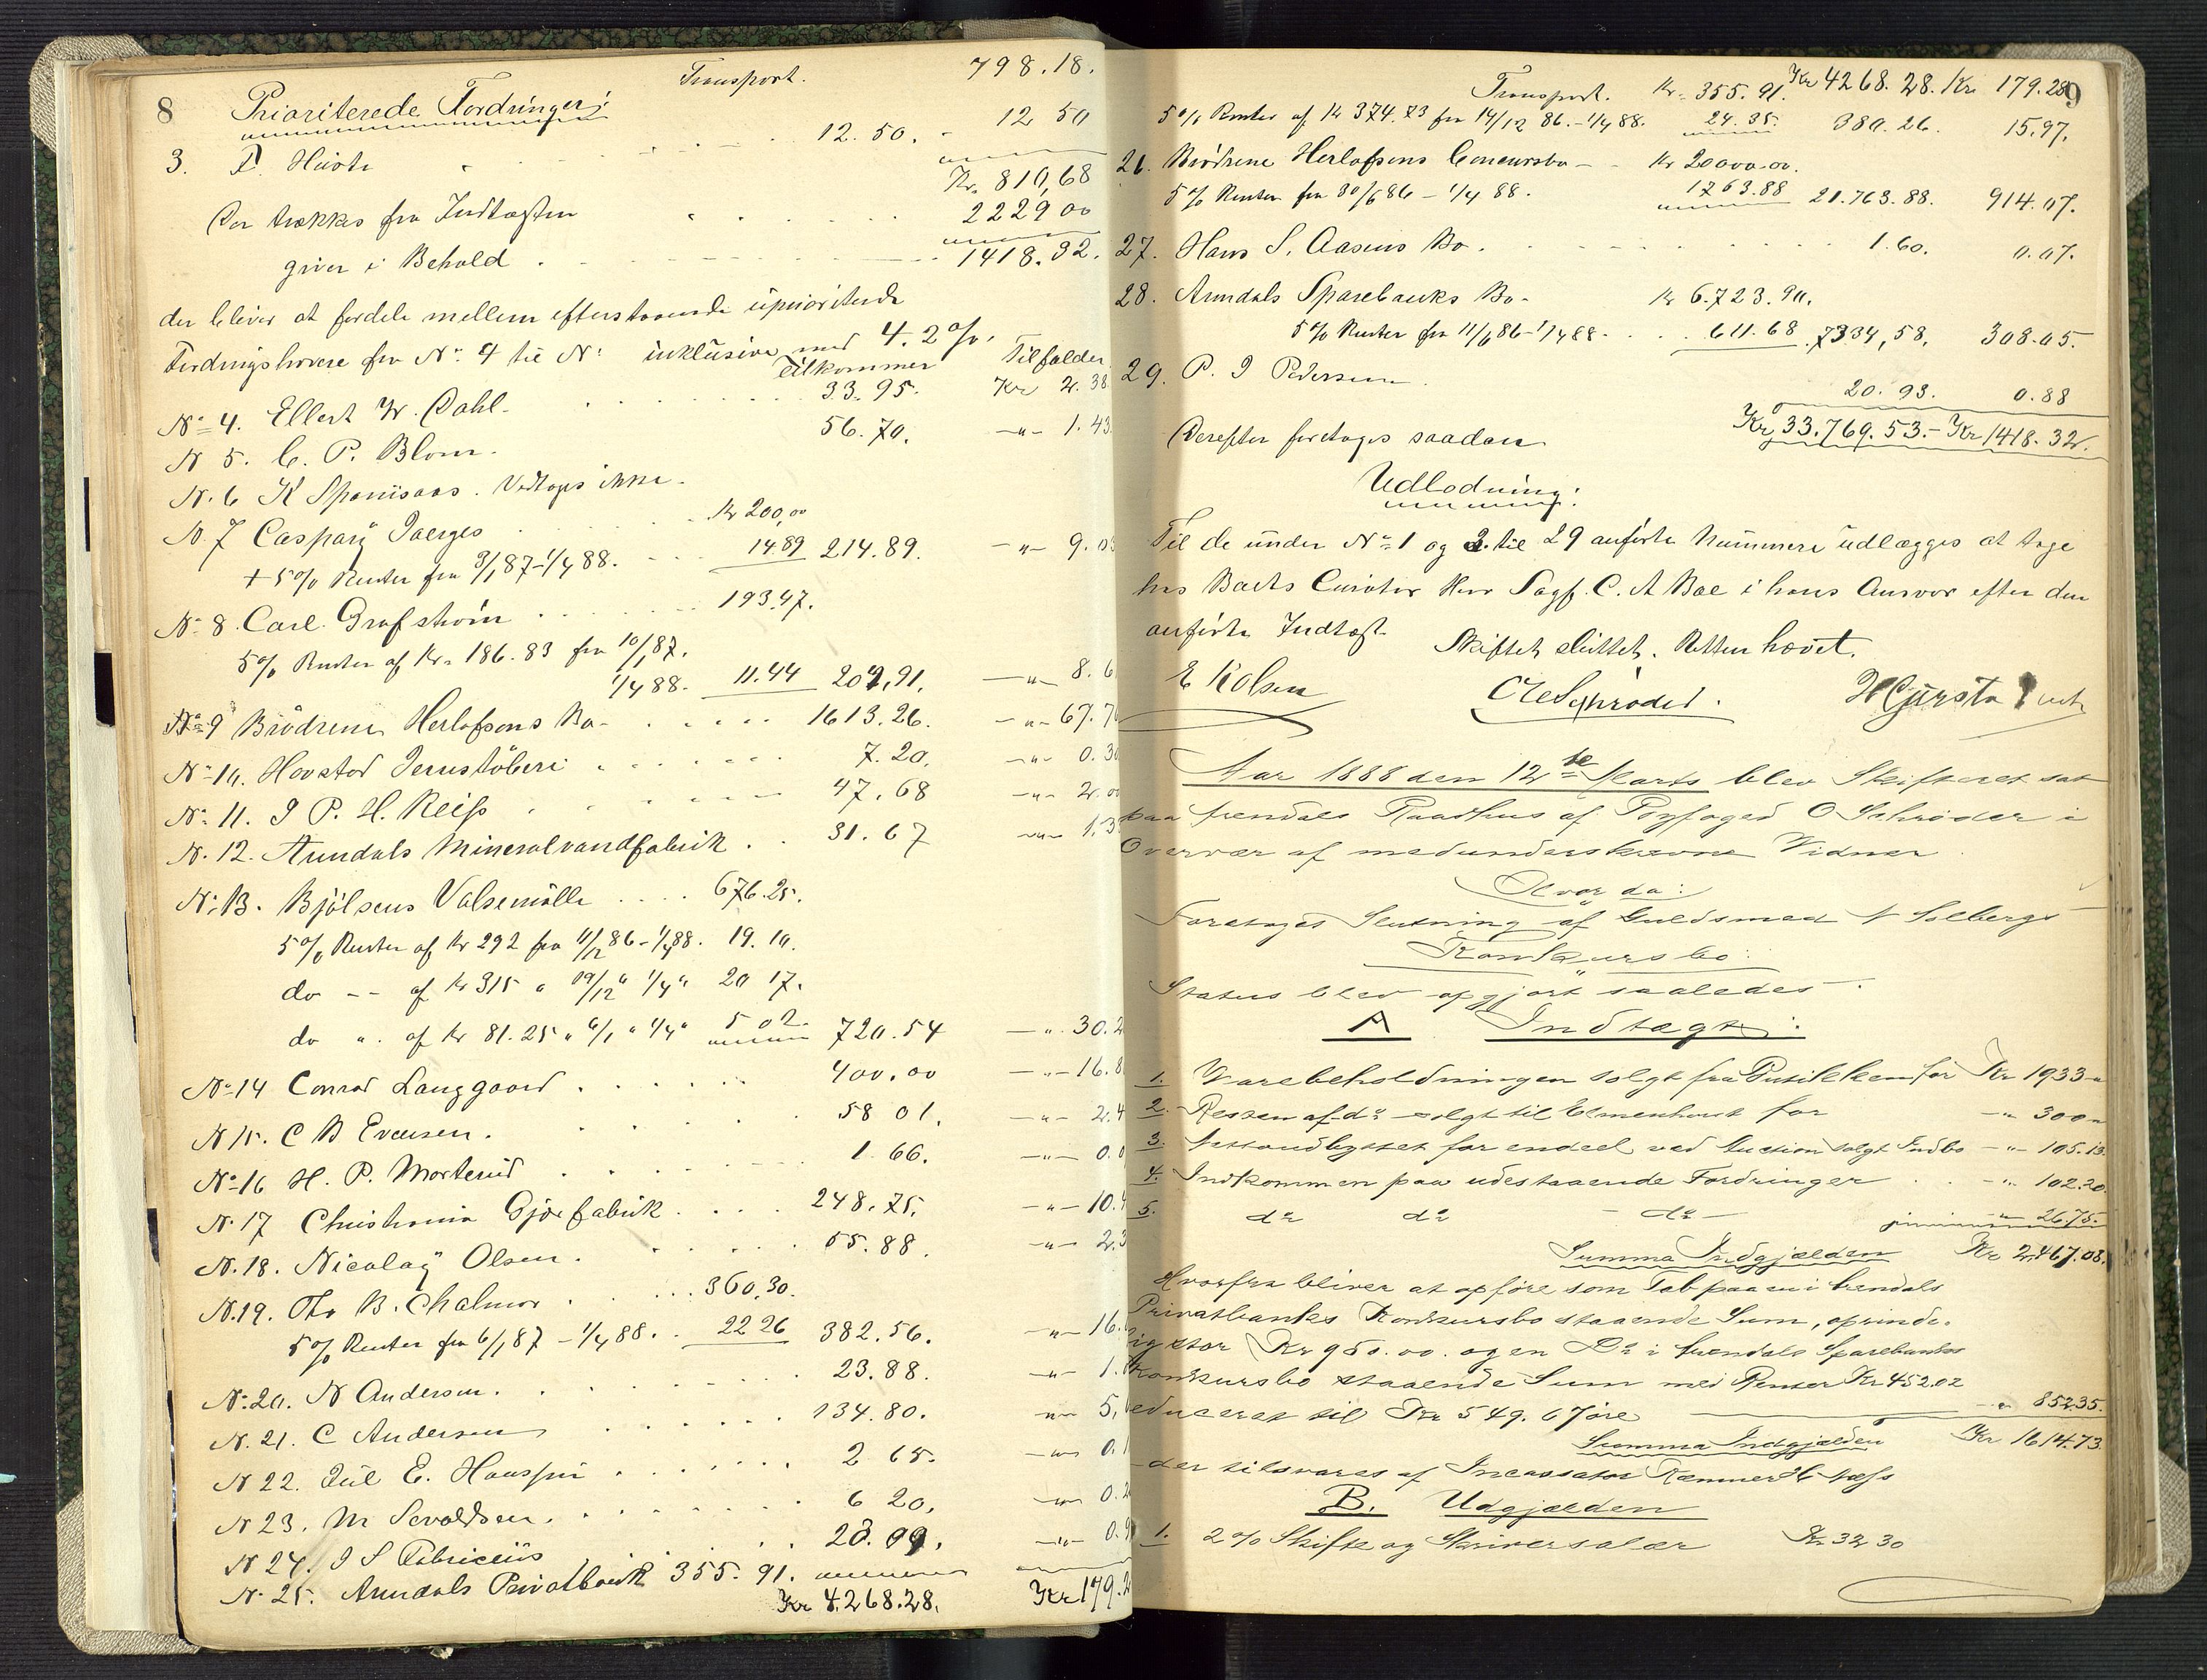 8
Transport. 798.18.
Prioriterede Fordringer:
3. Håvte 12.50. - 12 50
Kr. 810,68
Der trækkes fra Indtægten 2229 00
giver i Behold 1418.32.
der bliver at fordele mellem efterstaaende uprioriterede
Fordringshavere fra No. 4 til No. inklusive med 4.2%.
tilkommer Tilfalder
No. 4. Ellert W. Dahl. 33.95. Kr 2.38
N 5. C. P. Blom. 56.70. -"- 1.43
N. 6 K Spaniisaas. Vedtages ikke.
N. 7 Caspary Jaerges Kr 200,00
+ 5% Renter fra 3/1 87-1/4 88. 14.89 214.89. -"- 9.03
No. 8. Carl. Grafstrøm 193.47.
5% Renter af Kr. 186.83 fra 10/1 87.
1/4 88. 11.44 204,91. -"- 8.6
No. 9 Brödrene Herlofsons Bo. 1613.26. -"- 67.7
No. 10. Hovstad Jernstöberi 7.20. -"- 0.30
No. 11. J P. H. Reiss 47.68 -"- 2.00
N. 12. Arendals Mineralvandfabrik 31.67 -"- 1.3
No. 13. Bjölsens Valsemölle 676.25.
5% Renter af Kr 292 fra 11/12 86-1/4 88. 19.10.
do -- af Kr 315 " 19/12 " 1/4 " 20 17.
do ". af Kr 81.25 " 6/1 " 1/4 " 5 02. 720.54 -"- 30.2
No. 14 Conrad Langgaard 400.00 -"- 16.8
N 15. C B Evensen. 58 01. -"- 2.4
No. 16 H. P. Morterud 1 66. -"- 0.0
N. 17 Christiania Gjærfabrik 248.75. -"- 10.4
N. 18. Nicolay Olsen. 55.88. -"- 2.3
N. 19. Otto B. Chalmor 360.30.
5% Renter fra 6/1 87 - 1/4 88. 22 26 382.56. -"- 16.
No. 20. N Andersen. 23.88. -"- 1.
N. 21. C Andersen 134.80. -"- 5.
N 22. Jul E. Haussen 2 65. -"- 0.1
N 23. M Sevaldsen. 6 20. -"- 0.2
N 24. J S Fabriciüs 20.99. -"- 0.9
N. 25. Arendals Privatbank 355.91.
Kr 4.268.28. Kr 179.2
9
Transport. Kr. 355.91. Kr 4268.28. Kr 179.28
5% Renter af Kr 374.73 fra 14/12 86.-1/4 88. 24.35. 380.26. 15.97.
26. Brödrene Herlofsons Concursbo - Kr 20000.00.
5% Renter fra 30/6 86 - 1/4 88. 1763.88 21.763.88. 914.07.
27. Hans S. Aasens Bo. 1.60. 0.07.
28. Arendals Sparebanks Bo. Kr 6.723.90.
5% Renter fra 11/6 86-1/4 88. 611.68 7334,58. 308.05.
29. P. J Pedersen 20.93. 0.88
Kr 33.769.53.- Kr 1418.32.
Derefter foretages saadan
Udlodning:
Til de under No. 1 og 3. til 29 anførte Nummere udlægges at tage
hos Boets Curator Herr Sagf. C. A Bae i hans Ansvar efter den
anførte Indtægt.
Skiftet sluttet. Retten hævet.
E Kolsen CHSchrøder.
Aar 1888 den 12te Marts blev Skifteret sat
paa Arendals Raadhus af Byfoged O Schrøder i
Overvær af medunderskrevne Vidner.
Hvor da:
Foretoges Slutning af Guldsmed N Solbergs
Konkursbo:
Status blev opgjort saaledes.
A Indtægt:
1. Varebeholdningen solgt fra Butikken for Kr 1933 "
2. Resten af do solgt til Elmenhorst for -"- 300 "
3. Nettoudbyttet for endeel ved Auction solgt Indbo -"- 105.13.
4. Indkommen paa udestaaende Fordringer -"- 102.20.
5. do do - do - " 26.75.
Summa Indgjælden Kr 2467.08.
Hvorfra bliver at opføre som Tab paa en i Arendals
Privatbanks Konkursbo staaende Sum, oprinde-
lig stor Kr 950.00. og en Do i Arendals Sparebanks
Konkursbo staaende Sum med Renter Kr 452.02
reduceret til Kr 549.67 øre - " 852.35.
Summa Indgjælden Kr 1614.73
der tilsvares af Incassator Kæmner
B. Udgjælden
1. 2% Skifte og Skriversalær Kr 32 30